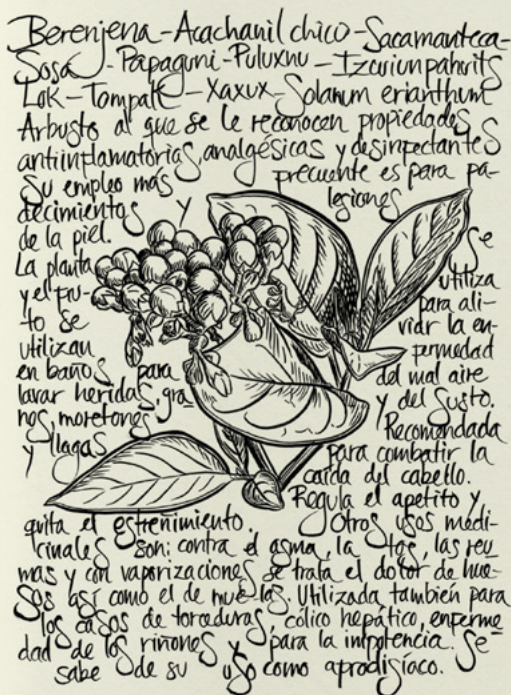 Berenjena - Acachanil chico - Sacamanteca -
Sosa - Papaguni - Puluxnu - Izcuiunpahurits
Lok - Tompalt - Xaxux - Solanum erianthum
Arbusto al que se le reconocen propiedades
antiinflamatorias, analgésicas y desinfectantes
Su empleo más frecuente es para pa-
decimientos y lesiones
de la piel.
La planta
y el fru-
to se
utilizan
en baños para
lavar heridas, gra-
nos, moretones
y llagas
Se
utiliza
para ali-
viar la en-
fermedad
del mal aire
y del susto.
Recomendada
para combatir la
caída del cabello.
Regula el apetito y
quita el estreñimiento. Otros usos medi-
cinales son: contra el asma, la tos, las reu
mas y con vaporizaciones se trata el dolor de hue-
sos así como el de muelas. Utilizada también para
los casos de torceduras, cólico hepático, enferme
dad de los riñones y para la impotencia. Se
sabe de su uso como afrodisíaco.